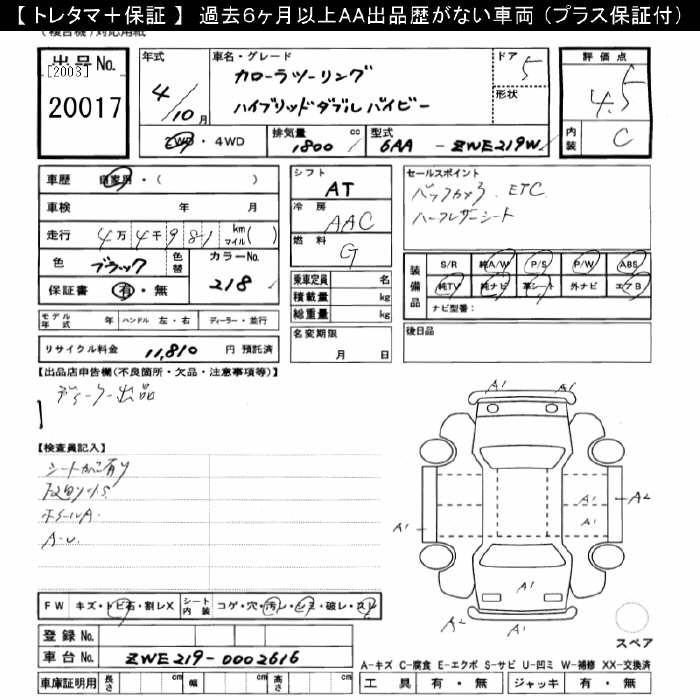 【トレタマ＋保証】 過去６ヶ月以上ＡＡ出品歴がない車両（プラス保証付）
(複合機)対応用紙
出品No. [2003]
20017
年式 4/10月
車名・グレード
カローラツーリング
ハイブリッドダブルバイビー
ドア 5
形状
評価点 4.5
内装 C
2WD・4WD
排気量 1800 cc
型式 6AA - ZWE219W
車歴 自家用・( )
車検 年 月
走行 4万4千981 km マイル( )
色 ブラック 色替
カラーNo. 218
保証書 有・無
シフト AT
冷房 AAC
燃料 G
乗車定員 名
積載量 kg
総重量 kg
名変期限 月 日
セールスポイント
バックカメラ ETC
ハーフレザーシート
装備品
S/R 純A/W P/S P/W ABS
純TV 純ナビ 革シート 外ナビ エアB
ナビ型番：
後日品
モデル年式 年 ハンドル 左・右 ディーラー・並行
リサイクル料金 11,810 円 預託済
【出品店申告欄(不良箇所・欠品・注意事項等)】
ディーラー出品
【検査員記入】
ホイールA.
A-U.
A1 A1
A1 A2
A1
A1
A1
A2 A1
FW キズ・トビ石・割レX シート内装 コゲ・穴・汚レ・シミ・破レ・スレ
登録No.
車台No. ZWE219-0002616
車庫証明用 長さ cm 幅 cm 高さ cm
スペア
A-キズ C-腐食 E-エクボ S-サビ U-凹ミ W-補修 XX-交換済
工具 有・無 ジャッキ 有・無